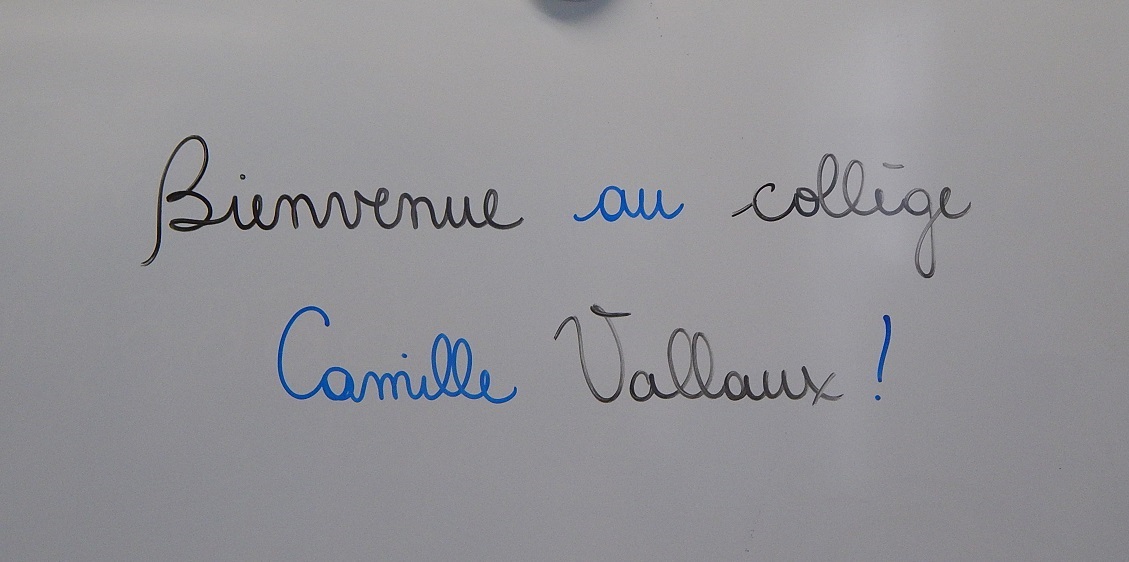 Bienvenue au collège
Camille Vallaux !